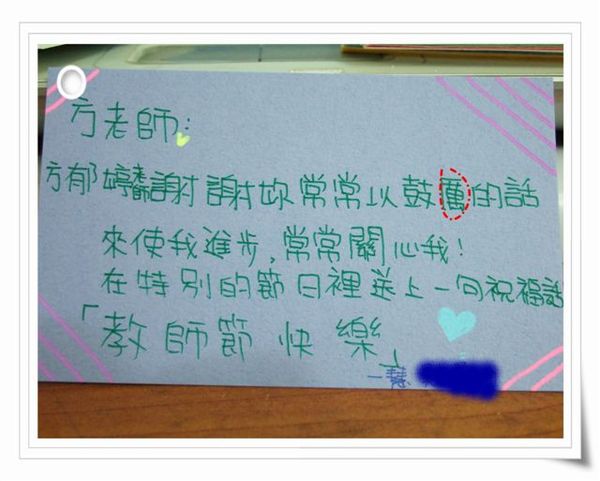 方老師:
方郁婷謝謝妳常常以鼓厲的話
來使我進步,常常關心我!
在特別的節日裡送上一句祝福話
「教師節快樂」
一慧